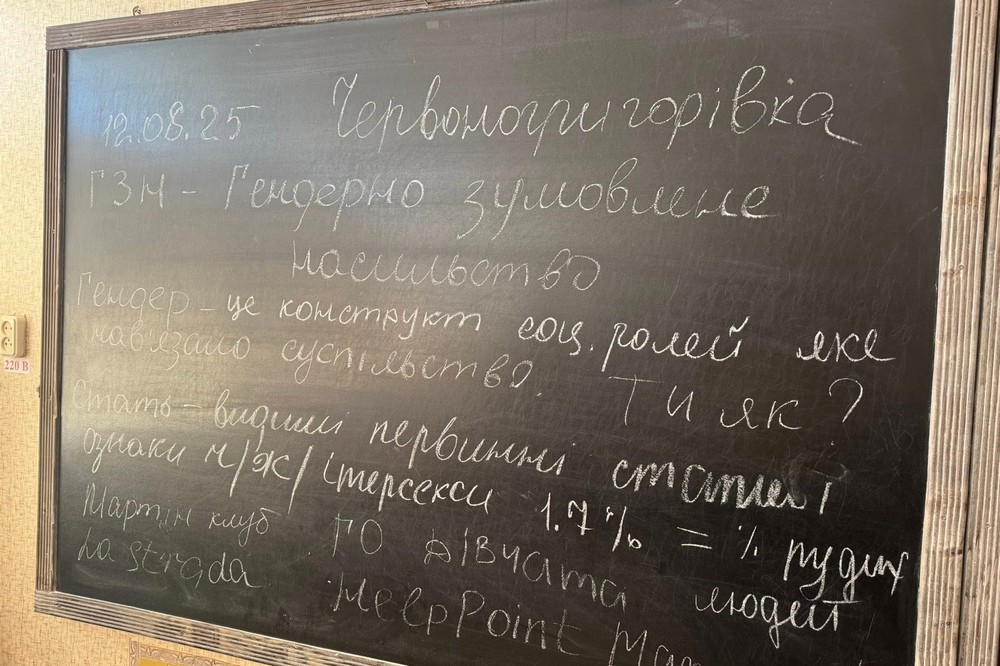 12.08.25 Червоногригорівка
ГЗН - Гендерно зумовлене
насильство
Гендер - це конструкт соц. ролей яке
нав'язано суспільство
Ти як?
Стать - видимі первинні статеві
ознаки ч/ж/інтерсекси 1.7% = % рудих
людей
Мартін клуб ГО Дівчата
La Strada HeepPoint
220 В